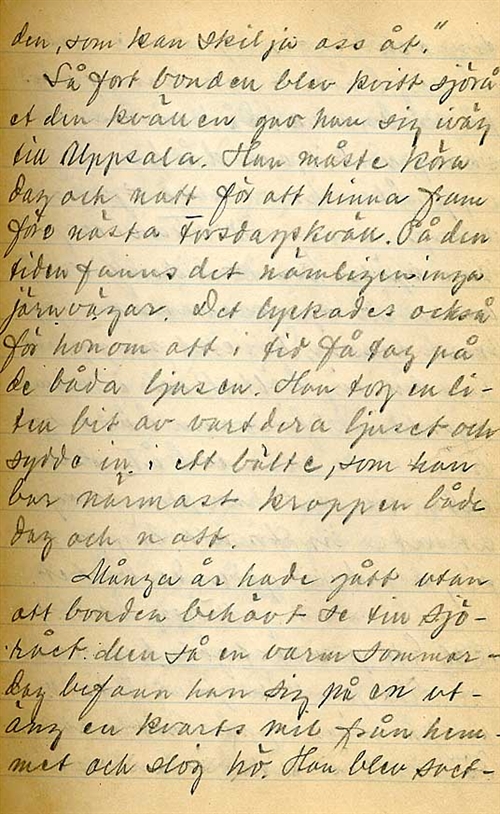 den, som kan skilja oss åt."
Så fort bonden blev kvitt sjörå
et den kvällen gav han sig iväg
till Uppsala. Han måste köra
dag och natt för att hinna fram
före nästa Torsdagskväll. På den
tiden fanns det nämligen inga
järnvägar. Det lyckades också
för honom att i tid få tag på
de båda ljusen. Han tog en li-
ten bit av vartdera ljuset och
sydde in i ett bälte, som han
bar närmast kroppen både
dag och natt.
Många år hade gått utan
att bonden behövt se till sjö-
rået. Men så en varm sommar-
dag befann han sig på en ut-
äng en kvarts mil från hem-
met och slog hö. Han blev svet-